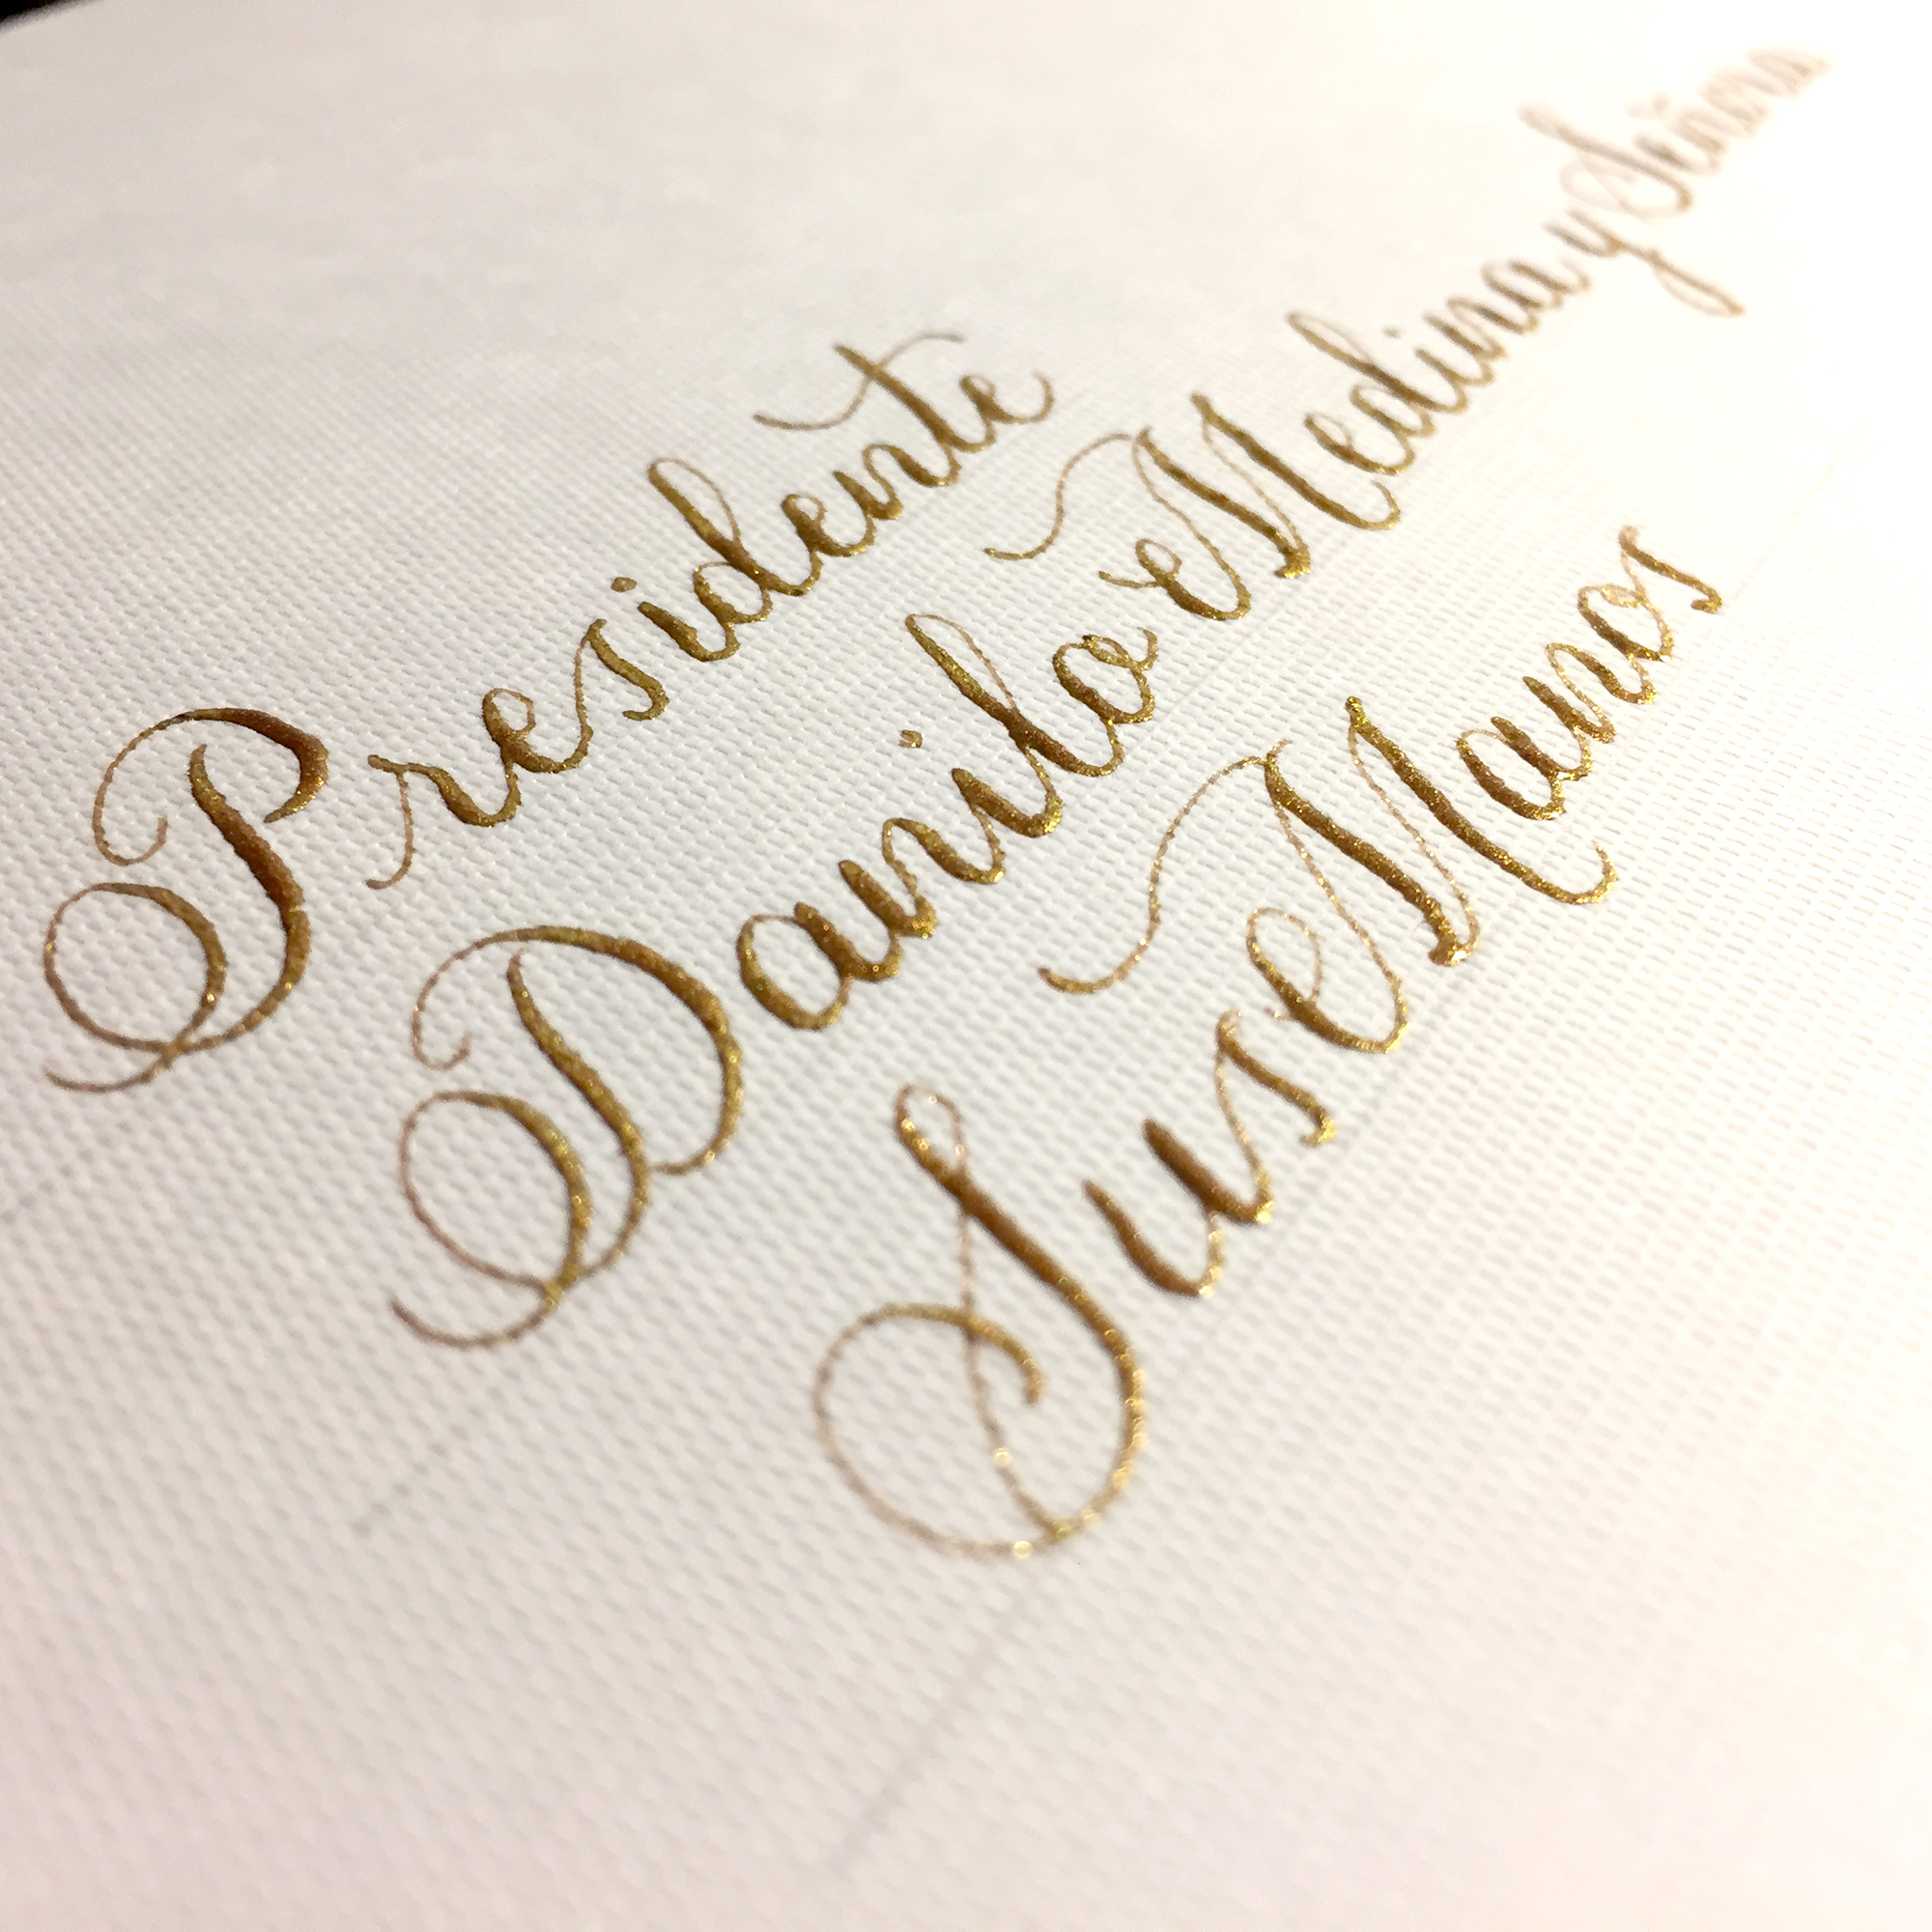 Presidente
Danilo Medina y Señora
Sus Manos